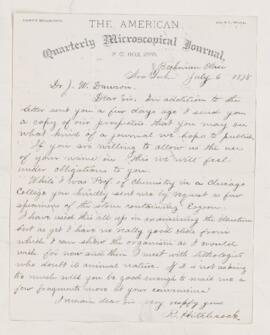 THE AMERICAN
Quarterly Microscopical Journal,
P. O. BOX
New York July 6 1878
Dr. J. W. Dawson.
Dear Sir. In addition to the
letter sent you a few days ago I send you
a copy of our prospectus that you may see
what kind of a journal we hope to publish
If you are willing to allow us the use
of your name in this we will feel
under obligations to you.
While I was Prof of Chemistry in a Chicago
College you kindly sent me by request a few
specimens of the stone containing Eozoon.
I have used this all up in examining the structure
but as yet I have no really good slide from
which I can show the organism as I would
wish for now and then I meet with lithologists
who doubt its animal nature. If it is not asking
too much will you be good enough to mail me a
few fragments more at your convenience
I remain dear sir very resp'y yours
R. Hitchcock